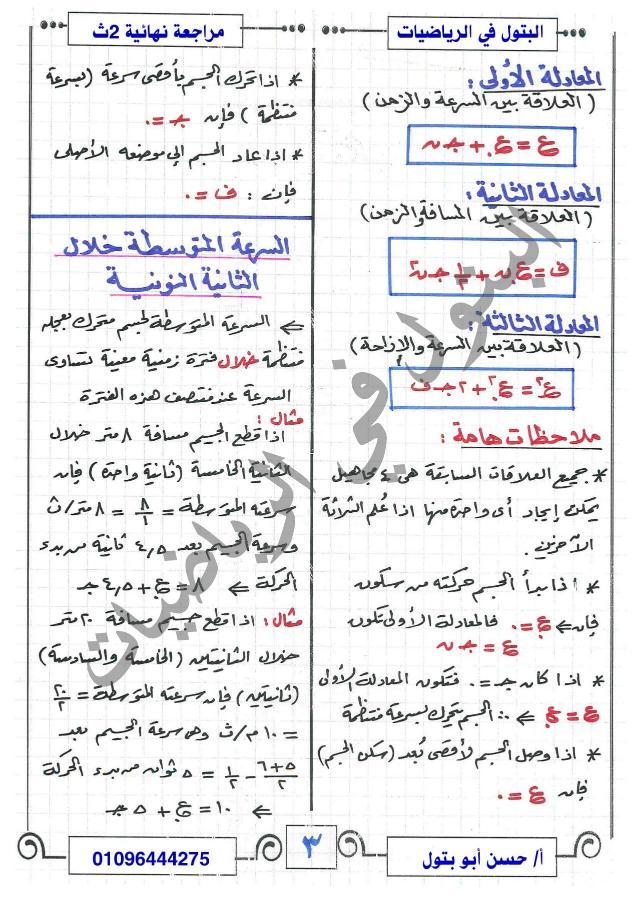 البتول في الرياضيات
مراجعة نهائية 2ث
المعادلة الأولى :
( العلاقة بين السرعة والزمن )
ع = ع. + جـ ن
المعادلة الثانية :
( العلاقة بين المسافة والزمن )
ف = ع. ن + ١/٢ جـ ن٢
المعادلة الثالثة :
( العلاقة بين السرعة والإزاحة )
ع٢ = ع.٢ + ٢ جـ ف
ملاحظات هامة :
* جميع العلاقات السابقة هى ٤ مجاهيل
يمكن إيجاد أى واحدة منها اذا عُلم الثلاثة
الآخرين .
* اذا بدأ الجسم حركته من سكون
فإن ⇐ ع. = ٠ فالمعادلة الأولى تكون
ع = جـ ن
* اذا كان جـ = ٠ فتكون المعادلة الأولى
ع = ع. ⇐ ∴ الجسم يتحرك بسرعة منتظمة
* اذا وصل الجسم لأقصى بُعد (سكن الجسم)
فإن ع = ٠
* اذا تحرك الجسم بأقصى سرعة (بسرعة
منتظمة ) فإن جـ = ٠
* اذا عاد الجسم الي موضعه الأصلى
فإن : ف = ٠
السرعة المتوسطة خلال
الثانية النونية
⇐ السرعة المتوسطة لجسم متحرك بعجلة
منتظمة خلال فترة زمنية معينة تساوى
السرعة عند منتصف هذه الفترة
مثال :
اذا قطع الجسم مسافة ٨ متر خلال
الثانية الخامسة ( ثانية واحدة ) فإن
سرعته المتوسطة = ٨/١ = ٨ متر/ث
وسرعة الجسم بعد ٤,٥ ثانية من بدء
الحركة ⇐ ٨ = ع. + ٤,٥ جـ
مثال : اذا قطع جسم مسافة ٢٠ متر
خلال الثانيتين ( الخامسة والسادسة )
(ثانيتين ) فإن سرعته المتوسطة = ٢٠/٢
= ١٠ م/ث وهى سرعة الجسم بعد
٥+٦/٢ - ١/٢ = ٥ ثوان من بدء الحركة
⇐ ١٠ = ع. + ٥ جـ
البتول في الرياضيات
أ/ حسن أبو بتول
٣
01096444275